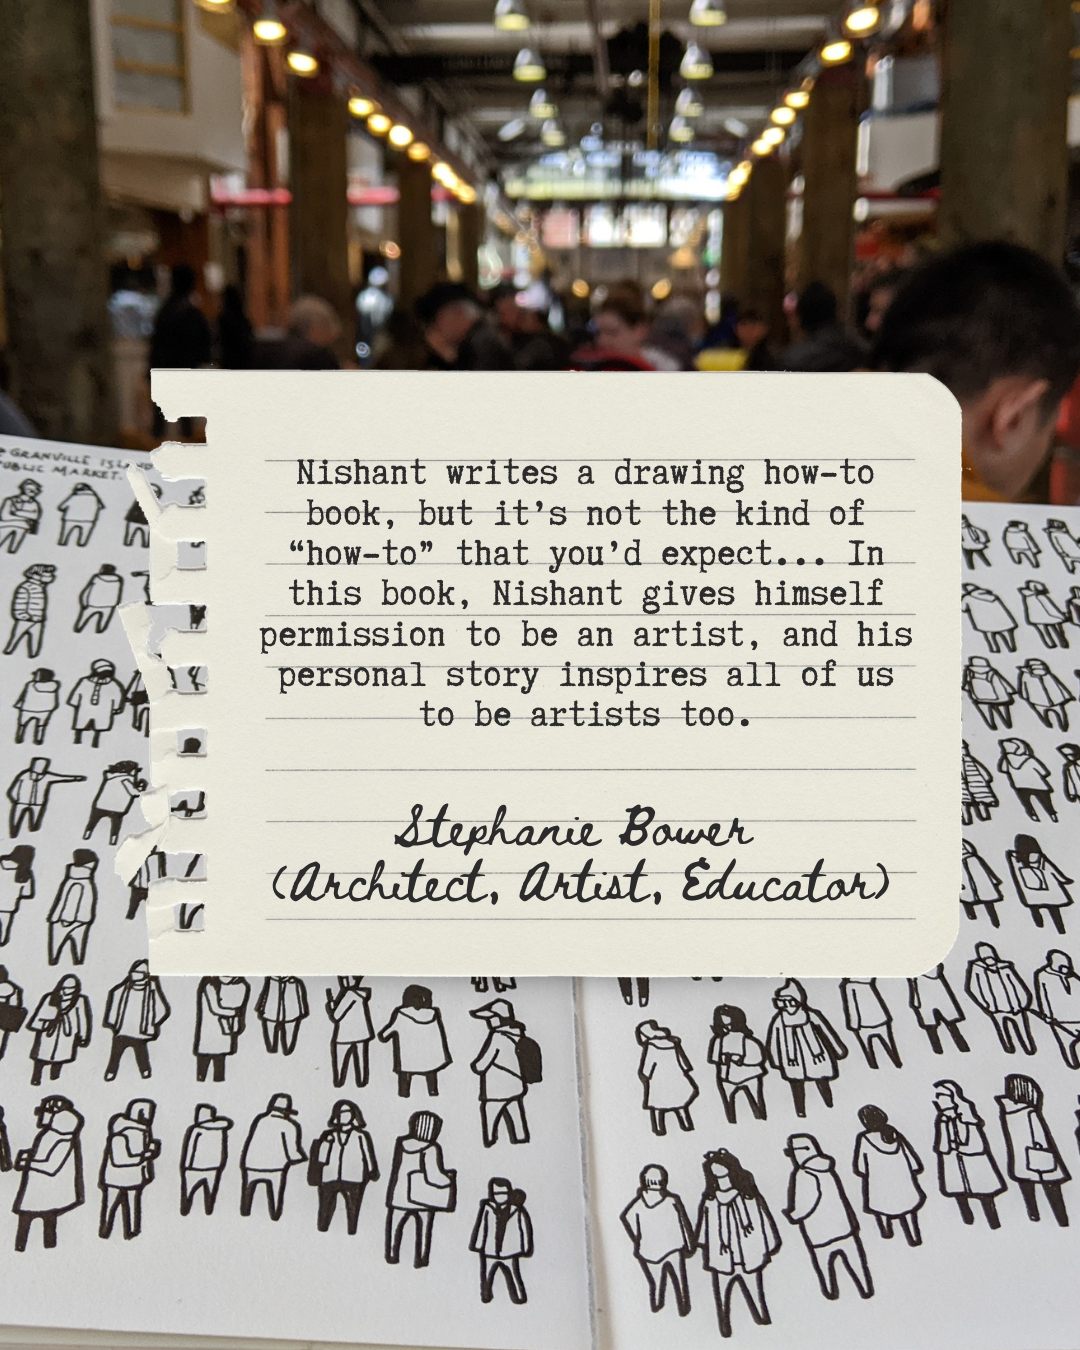 GRANVILLE ISLAND
PUBLIC MARKET.
Nishant writes a drawing how-to
book, but it’s not the kind of
“how-to” that you’d expect... In
this book, Nishant gives himself
permission to be an artist, and his
personal story inspires all of us
to be artists too.
Stephanie Bower
(Architect, Artist, Educator)